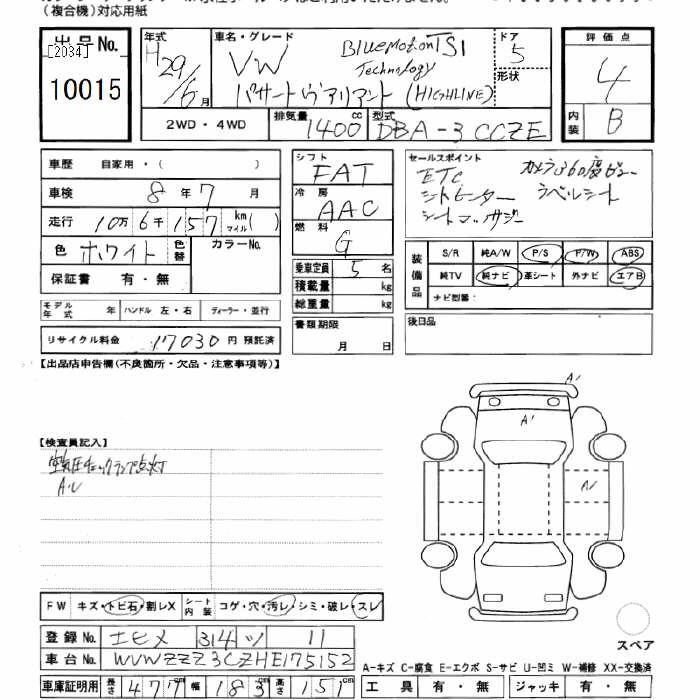 (複合機)対応用紙
出品No. [2034] 10015
年式 H29/6月
車名・グレード VW BlueMotion TSI Technology
パサートヴァリアント(HIGHLINE)
ドア 5
形状
評価点 4
内装 B
2WD・4WD
排気量 1400cc
型式 DBA-3CCZE
車歴 自家用・( )
車検 8年7月
走行 10万6千157km マイル( )
色 ホワイト 色替 カラーNo.
保証書 有・無
シフト FAT
冷房 AAC
燃料 G
乗車定員 5名
積載量 kg
総重量 kg
セールスポイント
ETC カメラ360度ビュー
シートヒーター ラベルシート
シートマッサジー
装備品 S/R 純A/W P/S P/W ABS
純TV 純ナビ 革シート 外ナビ エアB
ナビ型番:
モデル年式 年 ハンドル 左・右 ディーラー・並行
リサイクル料金 17030円預託済
書類期限 月 日
後日品
【出品店申告欄(不良箇所・欠品・注意事項等)】
A'
A'
A'
【検査員記入】
空気圧チェックランプ点灯
A・U
FW キズ・トビ石・割レX シート内装 コゲ・穴・汚レ・シミ・破レ・スレ
登録No. エヒメ 314 ツ 11
車台No. WVWZZZ3CZHE175152
車庫証明用 長さ 477cm 幅 183cm 高さ 151cm
スペア
A-キズ C-腐食 E-エクボ S-サビ U-凹ミ W-補修 XX-交換済
工具 有・無 ジャッキ 有・無